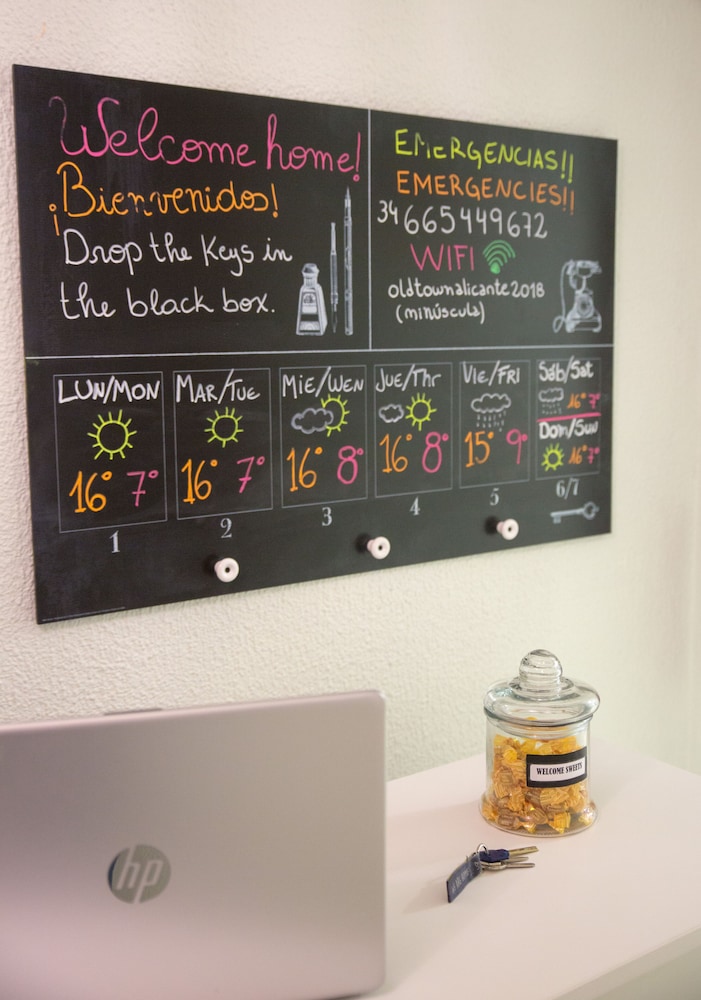 Welcome home!
¡Bienvenidos!
Drop the keys in
the black box.
EMERGENCIAS!!
EMERGENCIES!!
34665449672
WIFI
oldtownalicante2018
(minúscula)
LUN/MON
16° 7°
1
MAR/TUE
16° 7°
2
MIE/WEN
16° 8°
3
JUE/Thr
16° 8°
4
VIE/FRI
15° 9°
5
Sáb/Sat
16° 7°
Dom/Sun
16° 7°
6/7
WELCOME SWEETS
hp